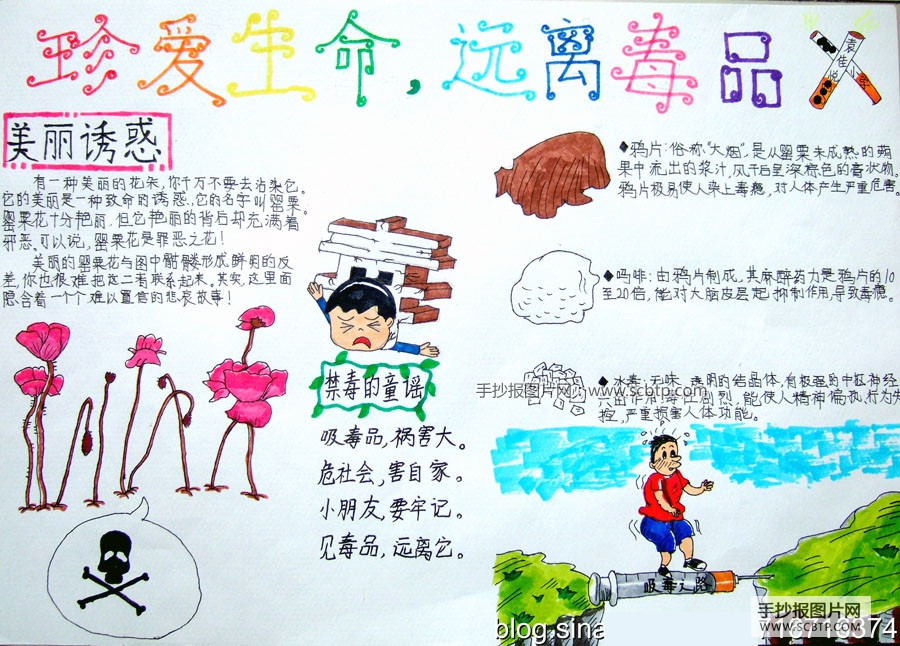 珍爱生命,远离毒品
袁佳悦
美丽诱惑
有一种美丽的花朵,你千万不要去沾染它。
它的美丽是一种致命的诱惑,它的名字叫罂粟。
罂粟花十分艳丽,但它艳丽的背后却充满着
邪恶。可以说,罂粟花是罪恶之花!
美丽的罂粟花与图中骷髅形成鲜明的反
差,你也很难把这二者联系起来。其实,这里面
隐含着一个个难以置信的悲哀故事!
禁毒的童谣
吸毒品,祸害大。
危社会,害自家。
小朋友,要牢记。
见毒品,远离它。
◆鸦片:俗称"大烟",是从罂粟未成熟的蒴
果中流出的浆汁,风干后呈深棕色的膏状物。
鸦片极易使人染上毒瘾,对人体产生严重危害。
◆吗啡:由鸦片制成,其麻醉药力是鸦片的10
至20倍,能对大脑皮层起抑制作用,导致毒瘾。
◆冰毒:无味、透明的结晶体,有极强的中枢神经
能使人精神偏执,行为失
控,严重损害人体功能。
手抄报图片网:www.scbtp.com
吸毒之路
手抄报图片网
WWW.SCBTP.COM
blog.sina